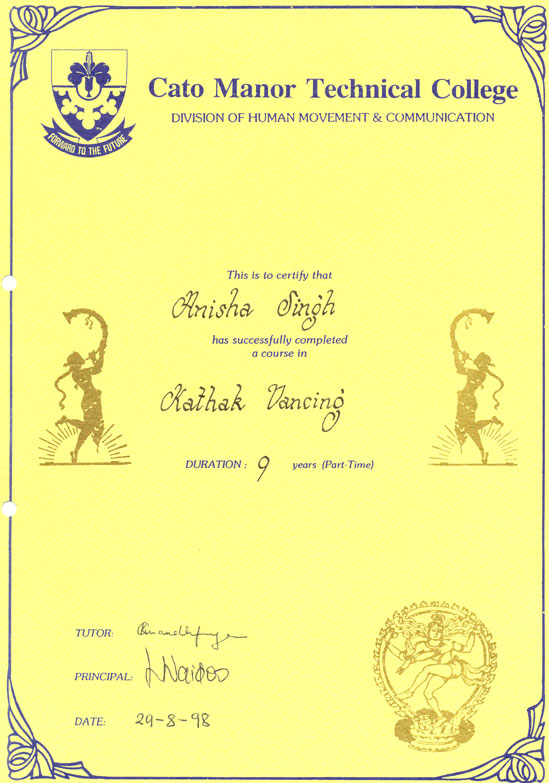 Cato Manor Technical College
DIVISION OF HUMAN MOVEMENT & COMMUNICATION
FORWARD TO THE FUTURE
This is to certify that
Anisha Singh
has successfully completed
a course in
Kathak Dancing
DURATION : 9 years (Part-Time)
TUTOR:
PRINCIPAL: Naidoo
DATE: 29-8-98